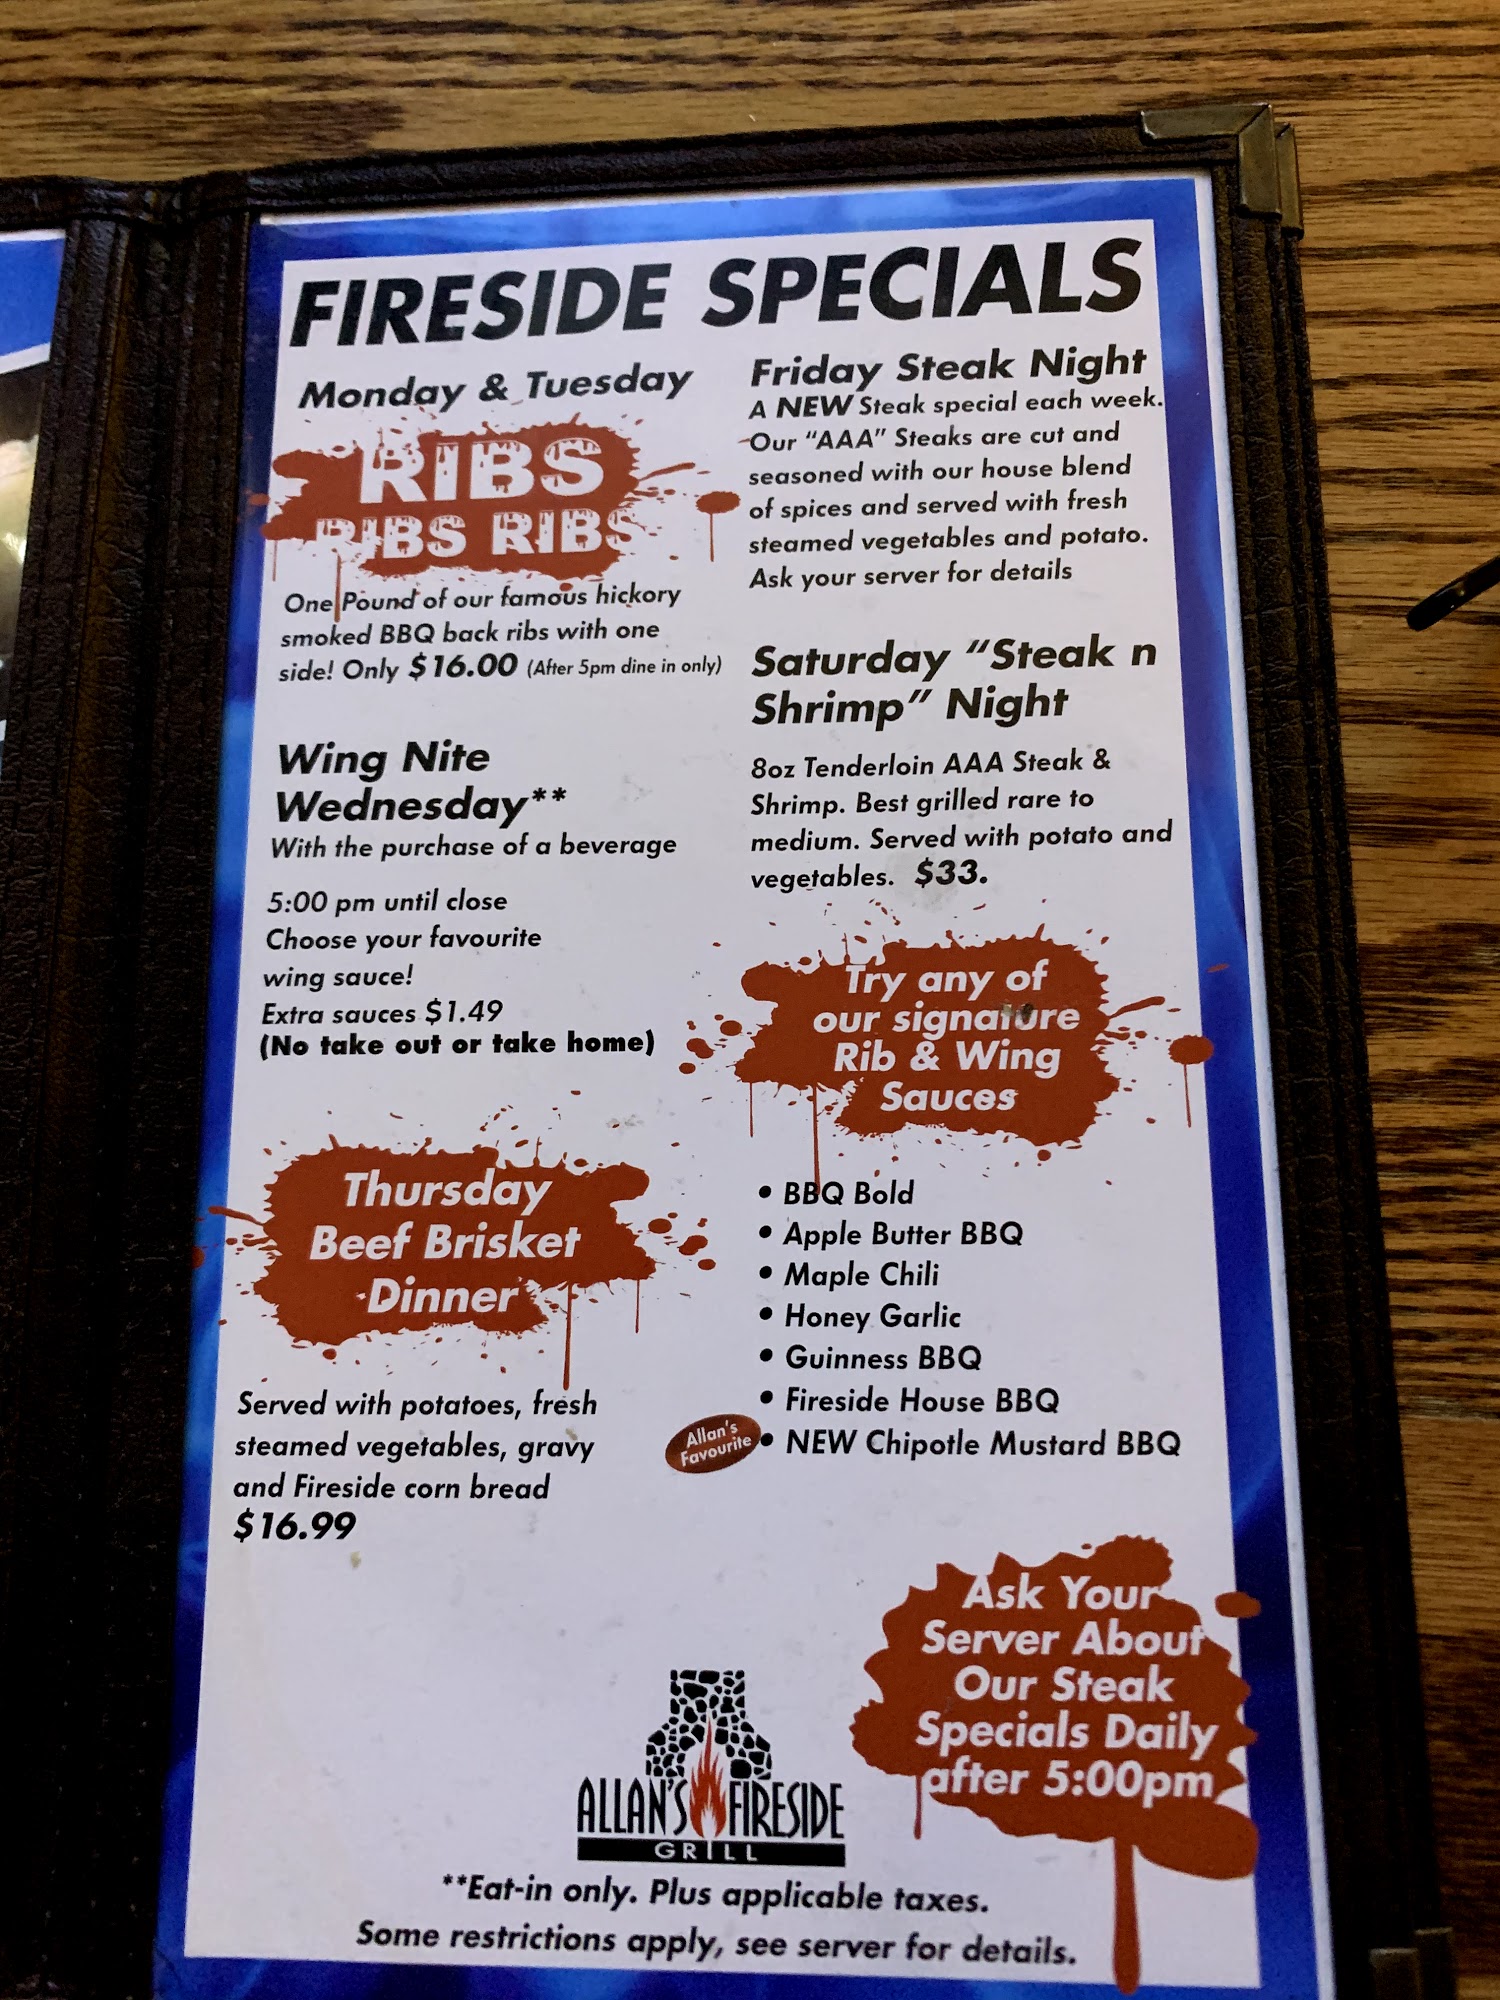 FIRESIDE SPECIALS
Monday & Tuesday
RIBS
RIBS RIBS
One Pound of our famous hickory
smoked BBQ back ribs with one
side! Only $16.00 (After 5pm dine in only)
Wing Nite
Wednesday**
With the purchase of a beverage
5:00 pm until close
Choose your favourite
wing sauce!
Extra sauces $1.49
(No take out or take home)
Thursday
Beef Brisket
Dinner
Served with potatoes, fresh
steamed vegetables, gravy
and Fireside corn bread
$16.99
Friday Steak Night
A NEW Steak special each week.
Our "AAA" Steaks are cut and
seasoned with our house blend
of spices and served with fresh
steamed vegetables and potato.
Ask your server for details
Saturday "Steak n
Shrimp" Night
8oz Tenderloin AAA Steak &
Shrimp. Best grilled rare to
medium. Served with potato and
vegetables. $33.
Try any of
our signature
Rib & Wing
Sauces
• BBQ Bold
• Apple Butter BBQ
• Maple Chili
• Honey Garlic
• Guinness BBQ
• Fireside House BBQ
Allan's
Favourite
• NEW Chipotle Mustard BBQ
Ask Your
Server About
Our Steak
Specials Daily
after 5:00pm
ALLAN'S FIRESIDE
GRILL
**Eat-in only. Plus applicable taxes.
Some restrictions apply, see server for details.